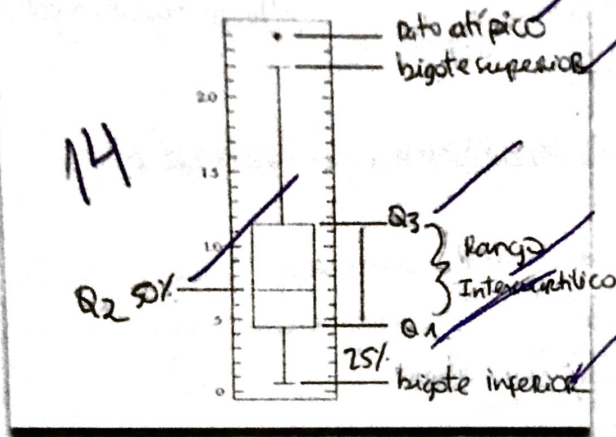 Dato atípico
bigote superior
20
14
15
Q3
10
Rango
Intercuartílico
Q2 50%
5
Q1
25%
bigote inferior
0